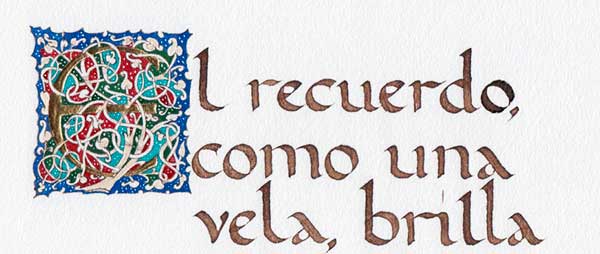 El recuerdo,
como una
vela, brilla